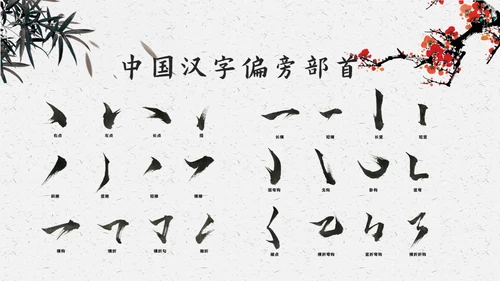 中国汉字偏旁部首
右点 右点 长点 提 长横 短横 长竖 短竖
斜撇 竖撇 短撇 横撇 竖弯钩 戈钩 卧钩 竖弯
横钩 横折 横折勾 撇折 撇点 横折弯钩 竖折弯钩 横折折钩